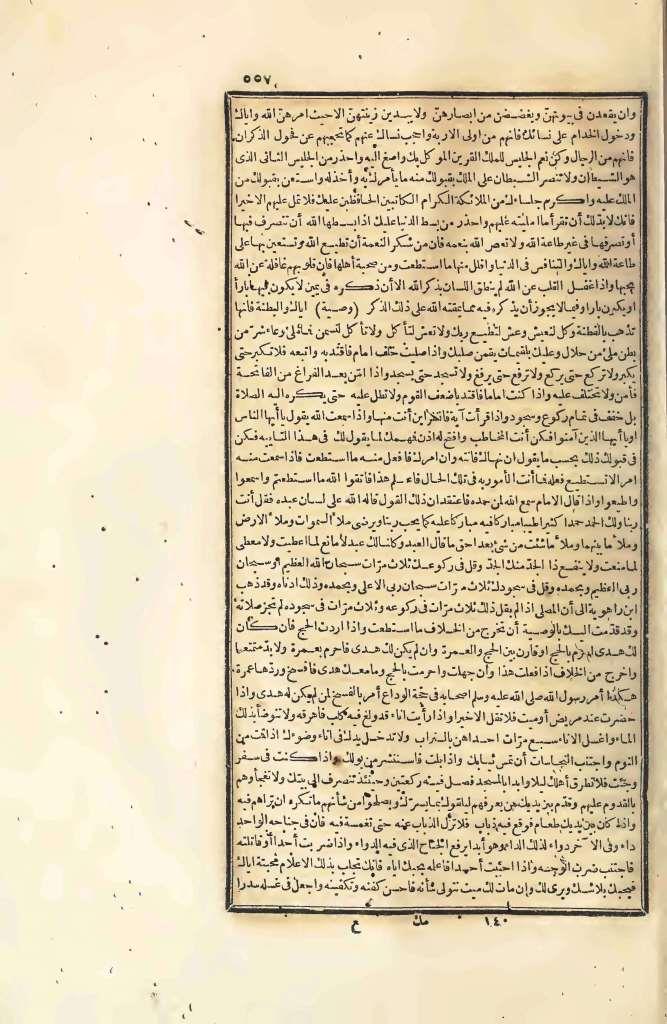 ٥٥٧
وان يقعدن فى بيوتهن ويغضضن من ابصارهن ولا يبدين زينتهن الا حيث امرهن الله واياك
ودخول الخدام على نسائك فانهم من اولى الاربة واحجب نساءك عنهم كما تحجبهم عن فحول الذكران
فانهم من الرجال وكن نعم الجليس للملك القرين الموكل بك واصغ اليه واحذر من الجليس الثانى الذى
هو الشيطان ولا تنصر الشيطان على الملك بقبولك منه ما يأمرك به وأخذله واستعن بقبولك من
الملك عليه واكرم جلساءك من الملائكة الكرام الكاتبين الحافظين عليك فلا تمل عليهم الا خيرا
فانك لا بد لك أن تقرأ ما امليته عليهم واحذر من بسط الدنيا عليك اذا بسطها الله أن تتصرف فيها
أو تصرفها فى غير طاعة الله ولا تعص الله بنعمه فان من شكر النعمة أن تطيع الله وتستعين بها على
طاعة الله واياك والتنافس فى الدنيا واقلل منها ما استطعت ومن صحبة أهلها فان قلوبهم غافلة عن الله
بحبها واذا غفل القلب عن الله لم ينطق اللسان بذكر الله الا أن ذكره فى يمين لا يكون فيها بارا
او يكون بارا وفيما لا يجوز أن يذكره فيه مما عقته الله على ذلك الذكر (وصية) اياك والبطنة فانها
تذهب بالفطنة وكل لتعيش وعش لتطيع ربك ولا تعش لتأكل ولا تأكل لتسمن فما ملئ وعاء شر من
بطن ملئ من حلال وعليك بلقيمات يقمن صلبك واذا صليت خلف امام فاقتد به واتبعه فلا تكبر حتى
يكبر ولا تركع حتى يركع ولا ترفع حتى يرفع ولا تسجد حتى يسجد واذا امّن بعد الفراغ من الفاتحة
فأمن ولا تختلف عليه واذا كنت اماما فاقتد باضعف القوم ولا تطل عليه حتى يكره اليه الصلاة
بل خفف فى تمام ركوع وسجود واذا قرأت آية فانظر اين أنت منها واذا سمعت الله يقول يا أيها الناس
او يا أيها الذين آمنوا فكن أنت المخاطب وافتح له اذن فهمك لما يقول لك فى هذا التأييه فكن
فى قبولك ذلك بحسب ما يقول ان نهاك فانته وان امرك فافعل منه ما استطعت فاذا سمعت منه
امرا لا تستطيع فعله فما أنت المأمور به فى تلك الحال هذا فاتقوا الله ما استطعتم واسمعوا
واطيعوا واذا قال الامام سمع الله لمن حمده فاعتقد ان ذلك القول قاله الله على لسان عبده فقل أنت
ربنا ولك الحمد حمدا كثيرا طيبا مباركا فيه مباركا عليه كما يحب ربنا ويرضى ملأ السموات وملأ الارض
وملأ ما بينهما وملأ ما شئت من شئ بعد احق ما قال العبد وكلنا لك عبد لا مانع لما اعطيت ولا معطى
لما منعت ولا ينفع ذا الجد منك الجد وقل فى ركوعك ثلاث مرّات سبحان الله العظيم أو سبحان
ربى العظيم وبحمده وقل فى سجودك ثلاث مرّات سبحان ربى الاعلى وبحمده وذلك ادناه وقد ذهب
ابن راهوية الى أن المصلى اذا لم يقل ذلك ثلاث مرّات فى ركوعه وثلاث مرّات فى سجوده لم تجز صلاته
وقد قدمت اليك بالوصية أن تخرج من الخلاف ما استطعت واذا اردت الحج فان كان
لك هدى احرم بالحج او قارن بين الحج والعمرة وان لم يكن لك هدى فاحرم بعمرة ولا بد متمتعا
واخرج من الخلاف اذا فعلت هذا وأن جهلت واحرمت بالحج وما معك هدى فافسخ وردها عمرة
هكذا أمر رسول الله صلى الله عليه وسلم اصحابه فى حجة الوداع أمر بالفسخ لمن لم يكن له هدى واذا
حضرت عند مريض أو ميت فلا تقل الا خيرا واذا رأيت اناء قد ولغ فيه كلب فاهرقه ولا تتوضأ بذلك
الماء واغسل الاناء سبع مرّات احداهن بالتراب ولا تدخل يدك فى اناء وضوءك اذا قت من
النوم واجتنب النجاسات أن تمس ثيابك واذا بلت فاستنثر من بولك واذا كنت فى سفر
وجئت فلا تطرق أهلك ليلا وابدأ بالمسجد فصل فيه ركعتين وحينئذ تنصرف الى بيتك ولا تفجأوهم
بالقدوم عليهم وقدم بين يديك من يعرفهم ليلقوك بما يسرك ويصلحوا من شأنهم ما تكره ان تراهم فيه
واذا كان بين يديك طعام فوقع فيه ذباب فلا تزل الذباب عنه حتى تغمسه فيه فان فى جناحه الواحد
داء وفى الآخر دواء لذلك الداء وهو أبدا يرفع الجناح الذى فيه الدواء واذا ضربت أحدا أو قاتلته
فاجتنب ضرب الوجه واذا احببت أحدا فاعلمه بحبك اياه فانك تجلب بذلك الاعلام محبته اياك
فيحبك بلا شك ويرى لك وان مات لك ميت تتولى شأنه فاحسن كفنه وتكفينه واجعل فى غسله سدرا
١٤٠ مك ع